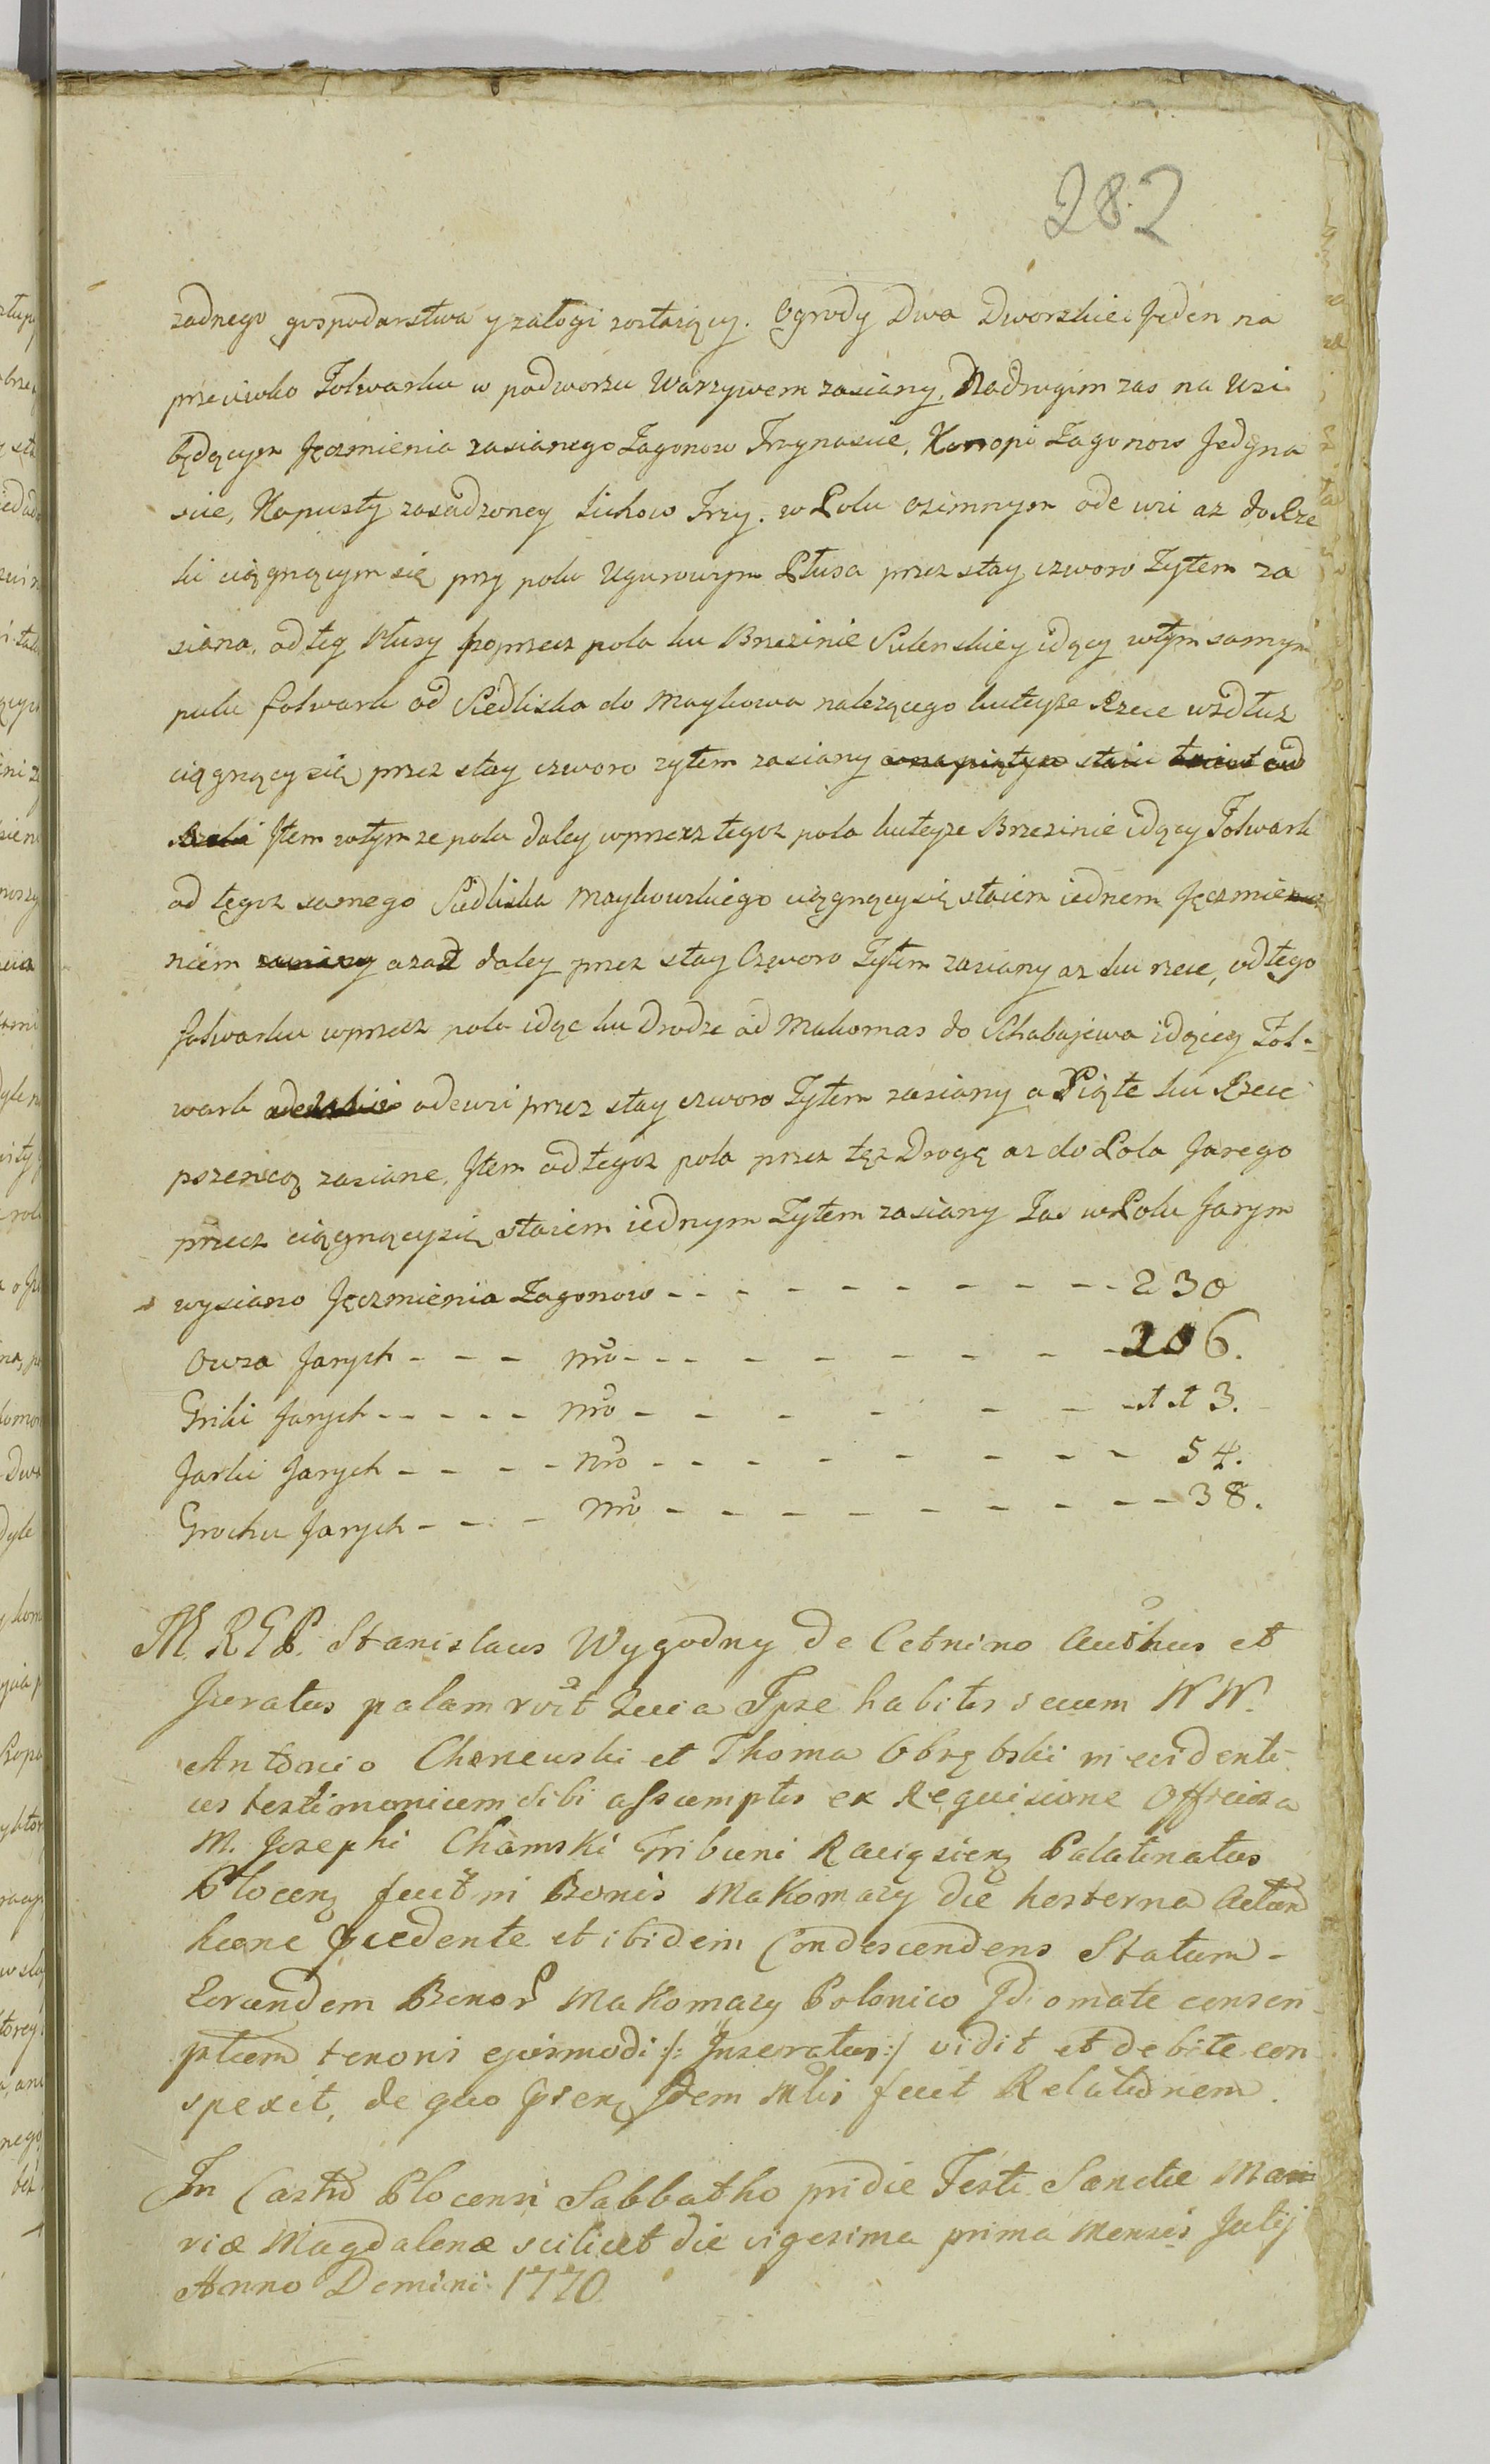 282
zadnego gospodarstwa y załogi zostaiący. Ogrody Dwa Dworskie Jeden na
przeciwko Folwarku w podworzu Warzywem zasiany, Nadrugim zas na Wsi
będącym Jęczmienia zasianego Zagonow Trzynascie, Konopi Zagonow Jedyna
scie, Kapusty zasadzoney Lichow Trzy. w Polu ozimnym ode wsi az do Rze
ki ciągnącym się przy polu Ugurowym Płusa przez stay czworo Zytem za
siana, od tey Płusy poprzecz pola ku Brzezinie Sulenskiey idący wtym samym
polu folwark od Siedliska do Maykowa nalezącego kuteyze Rzece wzdłuz
ciągnący się przez stay czworo zytem zasiany
Item wtymze polu daley wprzecz tegoz pola kuteyze Brzezinie idący Folwark
od tegoz samego Siedliska Maykowskiego ciągnący się staiem iednem Jęczmie
niem azad daley przez stay Czworo Zytem zasiany az ku rzece, od tego
folwarku wprzecz pola idąc ku Drodze od Makomas do Schabajewa idącey Fol-
wark odewsi przez stay czworo Zytem zasiany a Piąte ku Rzece
pszenicą zasiane. Item od tegoz pola przez tęz Drogę az do Pola Jarego
przecz ciągnący się staiem iednym Zytem zasiany Zas w Polu Jarym
wysiano Jęczmienia Zagonow - - - - - - - - - 230
Owsa Jarych - - - nro - - - - - - - - 206.
Griki Jarych - - - - - nro - - - - - - - 113.
Jarki Jarych - - - - nro - - - - - - - - 54.
Grochu Jarych - - - nro - - - - - - - - - 38.
M. RGP. Stanislaus Wygodny de Cetnino Authus et
Juratus palam rvit Quia Ipse habitis secum WW.
Antonio Chonewski et Thoma Obrębski in evidenti-
us testimonium sibi assumptis ex Requisione Officiosa
M. Josephi Chamski Tribuni Raciązien Palatinatus
Plocen fuit in Bonis Makomazy die hesterna Actum
hunc pcedente et ibidem Condescendens Statum -
Eorundem Bonor Makomazy Polonico Idiomate conscri-
ptum tenoris ejusmodi /: Inseratur :/ vidit et debite con
spexit, de quo psen Idem Mlis fecit Relationem.
In Castro Plocensi Sabbatho pridie Festi Sanctæ Ma
riæ Magdalenæ scilicet die vigesima prima Mensis Julij
Anno Domini 1770